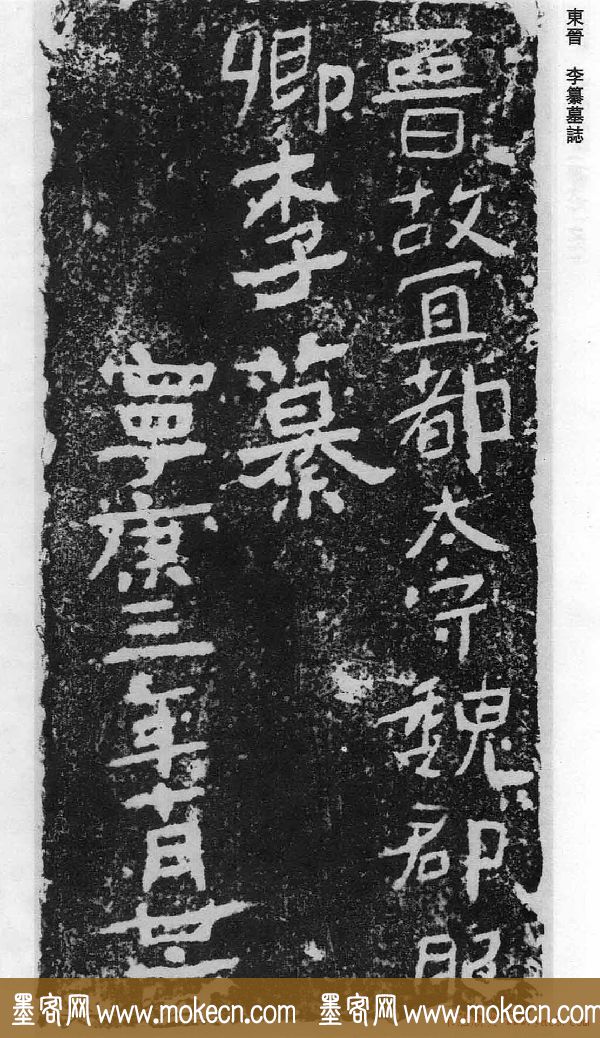 東晉 李纂墓誌
晉故宜都太守魏郡肥
鄉李纂
寧康三年十月廿
墨客网 www.mokecn.com 墨客网 www.mokecn.com